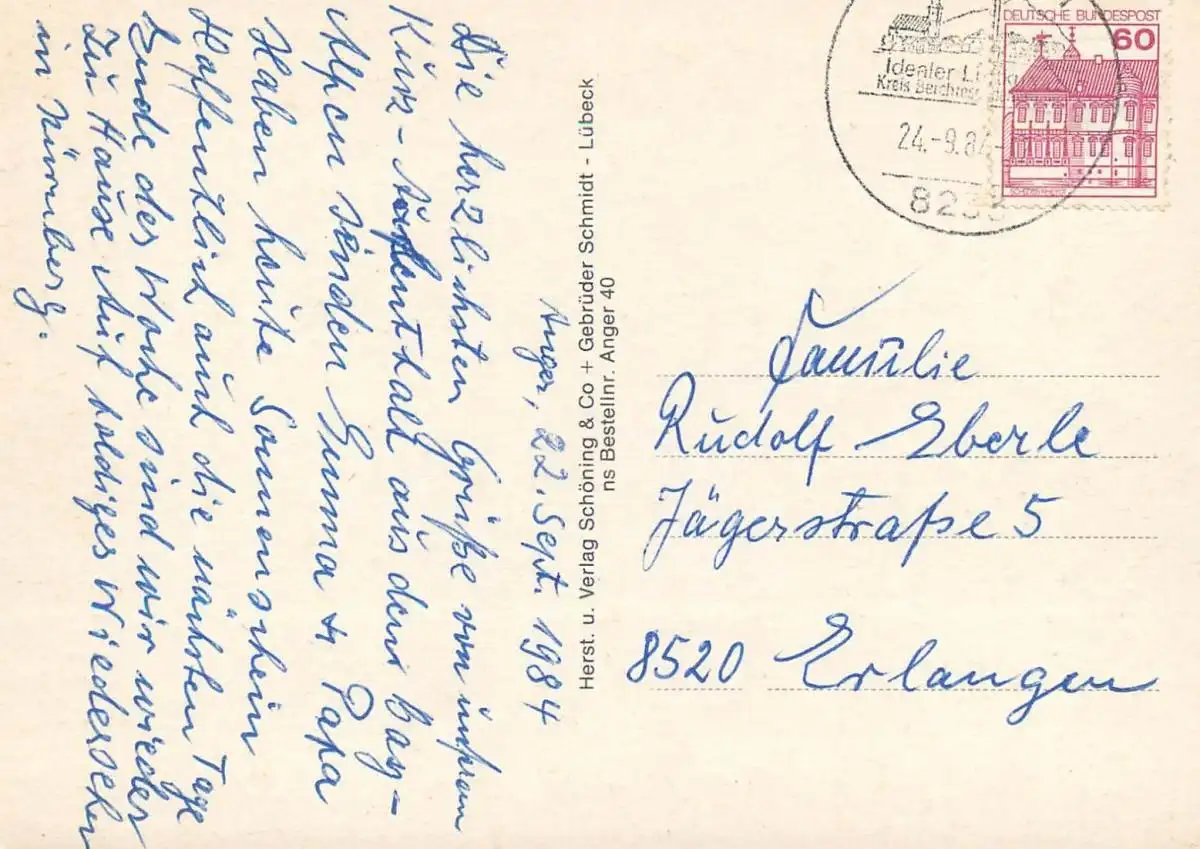 Anger, 22. Sept. 1984
Die herzlichsten Grüße von unsrem
Kurz-Aufenthalt aus den bay-
Alpen senden Emma & Papa
Haben heute Sonnenschein
Hoffentlich auch die nächsten Tage
Ende des Woche sind wir wieder
zu Hause Auf baldiges Wiedersehen
in Nürnberg.
Herst. u. Verlag Schöning & Co + Gebrüder Schmidt - Lübeck
ns Bestellnr. Anger 40
Idealer
Kreis
24.-9.84
DEUTSCHE BUNDESPOST
60
Familie
Rudolf Eberle
Jägerstraße 5
8520 Erlangen